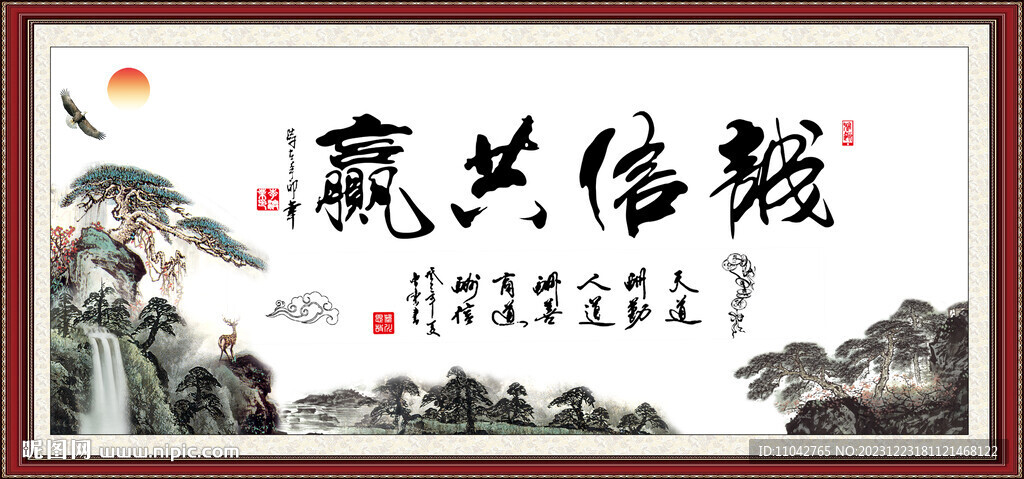 誠信共贏
天道
酬勤
人道
酬善
商道
酬信
昵图网 www.nipic.com
ID:11042765 NO:20231223181121468122